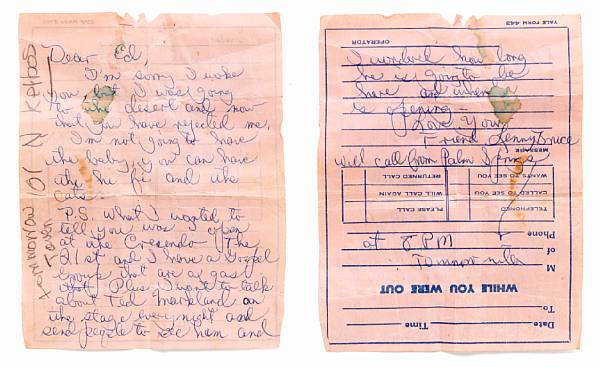 Dear Ed,
I'm sorry I woke
you but I was going
to the desert and now
that you have rejected me,
I'm not going to have
the baby, you can have
the hi fi and the
car.
P.S. what I wanted to
tell you was I open
at the Cresendo The
21st and I have a Gospel
Group that are a gas
Plus I want to talk
about Ted Markland on
the stage every night and
send people to see him and
tommorow 10
YALE FORM 443
OPERATOR
I wondered how long
he is going to be
there and when
is opening —
Love Your
Friend Lenny Bruce
MESSAGE
will call from Palm Springs
WANTS TO SEE YOU
RETURNED CALL
CALLED TO SEE YOU
WILL CALL AGAIN
TELEPHONED
PLEASE CALL
Phone
at 8 PM
of
M
WHILE YOU WERE OUT
To
Date
Time